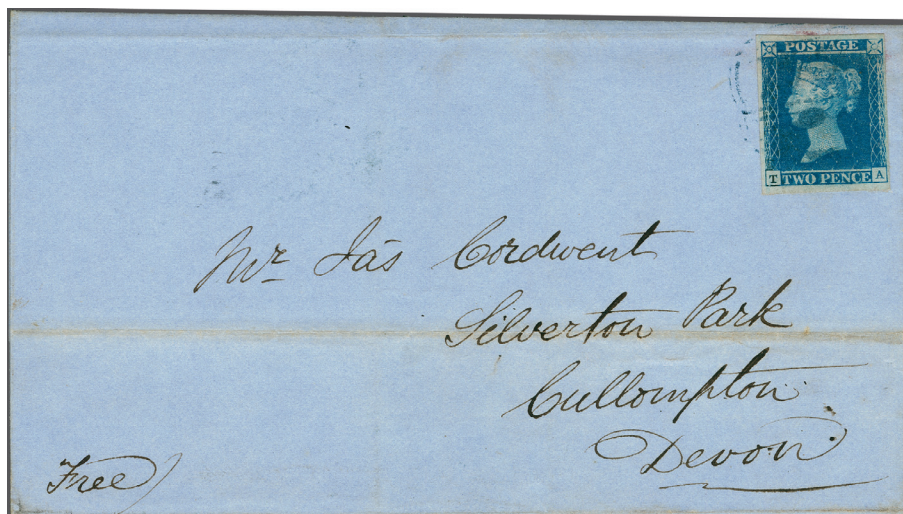 POSTAGE
T TWO PENCE A
Mr Jas Cordwent
Silverton Park
Cullompton
Devon.
Free